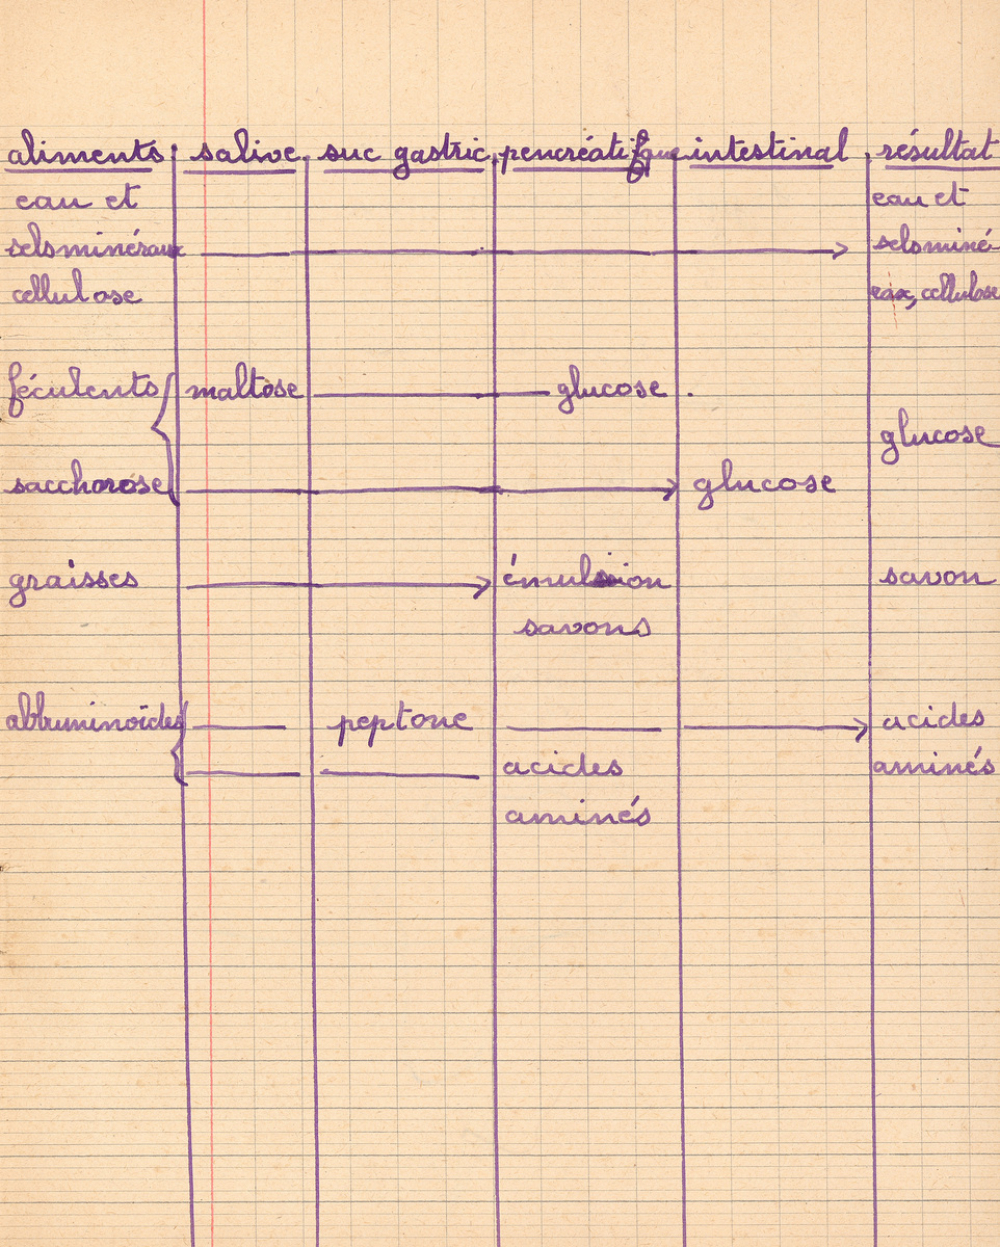 aliments salive suc gastric pencréatifque intestinal résultat
eau et eau et
sels minéraux sels miné
cellulose eax, cellulose
féculents maltose glucose .
glucose
sacchorose glucose
graisses émulsion savon
savons
abbuminoïdes peptone acides
acides aminés
aminés